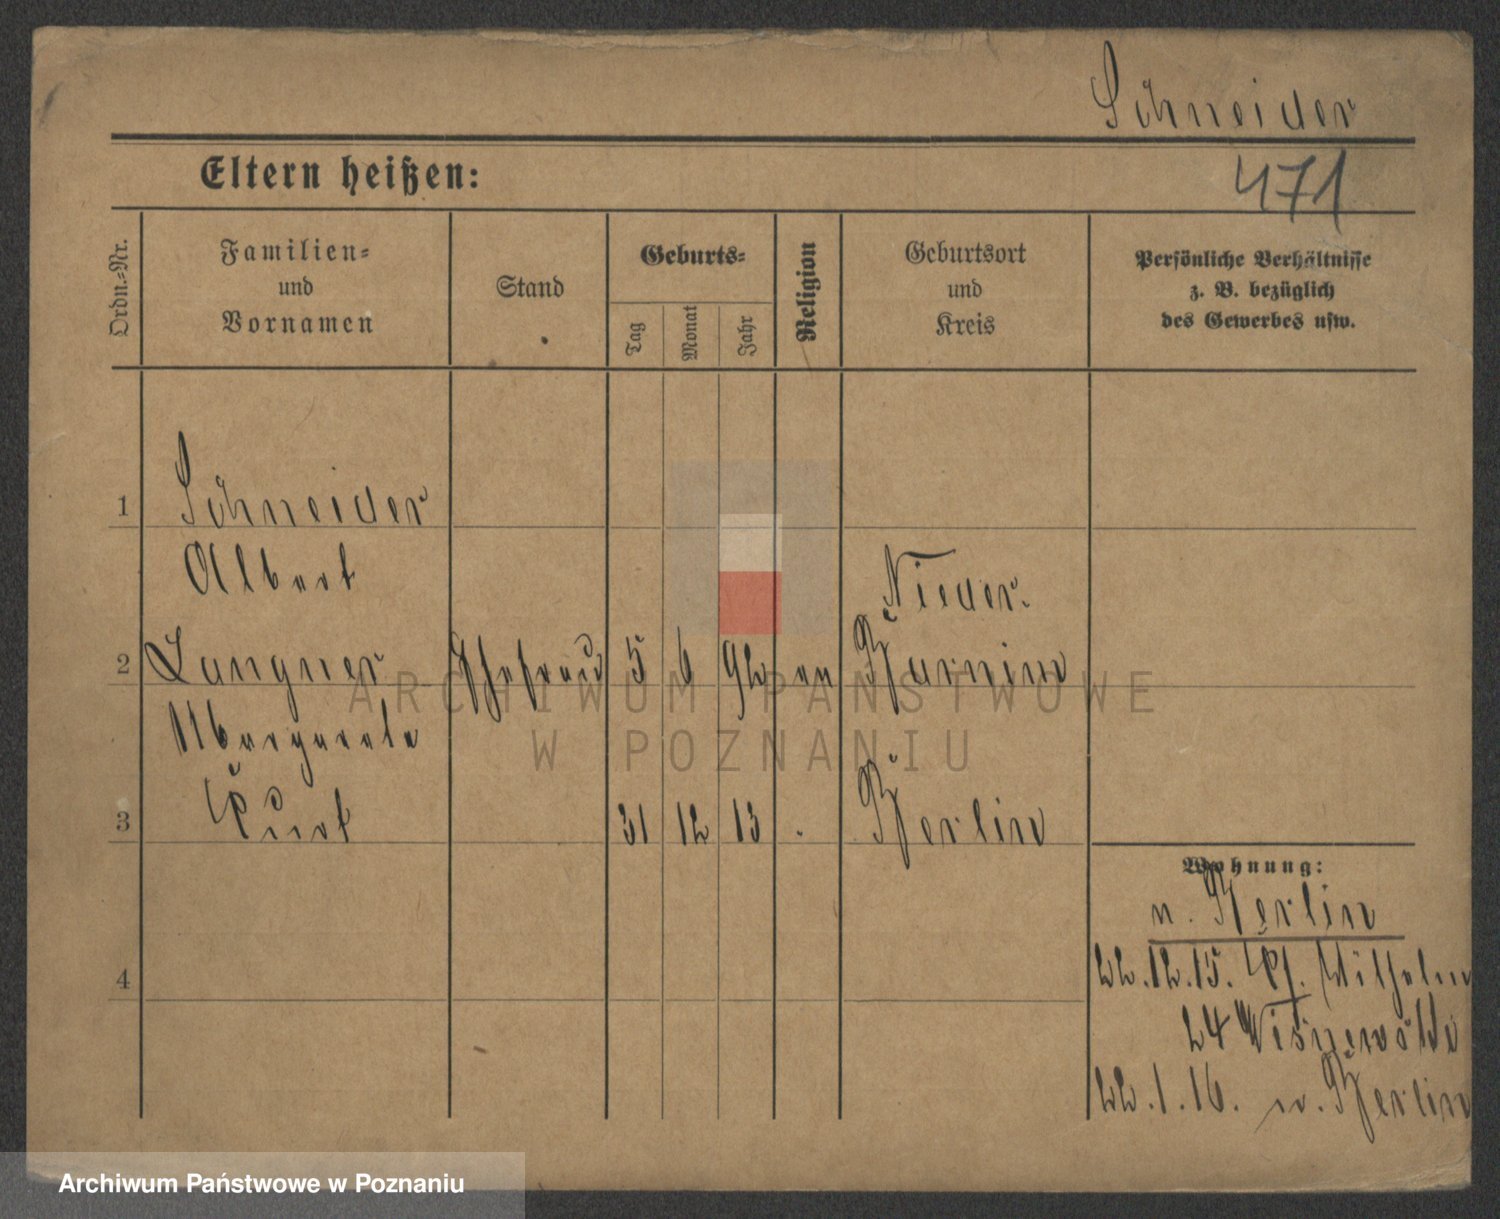 Schneider
Eltern heißen:
471
Ordn.-Nr.
Familien-
und
Vornamen
Stand
Geburts-
Tag
Monat
Jahr
Religion
Geburtsort
und
Kreis
Persönliche Verhältnisse
z. B. bezüglich
des Gewerbes usw.
1 Schneider
Albert
Nieder.
2 Langner Ehefrau 5 6 92 ev Barnim
Margarete
3 Kurt 31 12 13 . Berlin
Wohnung:
n. Berlin
4
22.12.15. Wilhelm
24
22.1.16. n. Berlin
ARCHIWUM PAŃSTWOWE
W POZNANIU
Archiwum Państwowe w Poznaniu